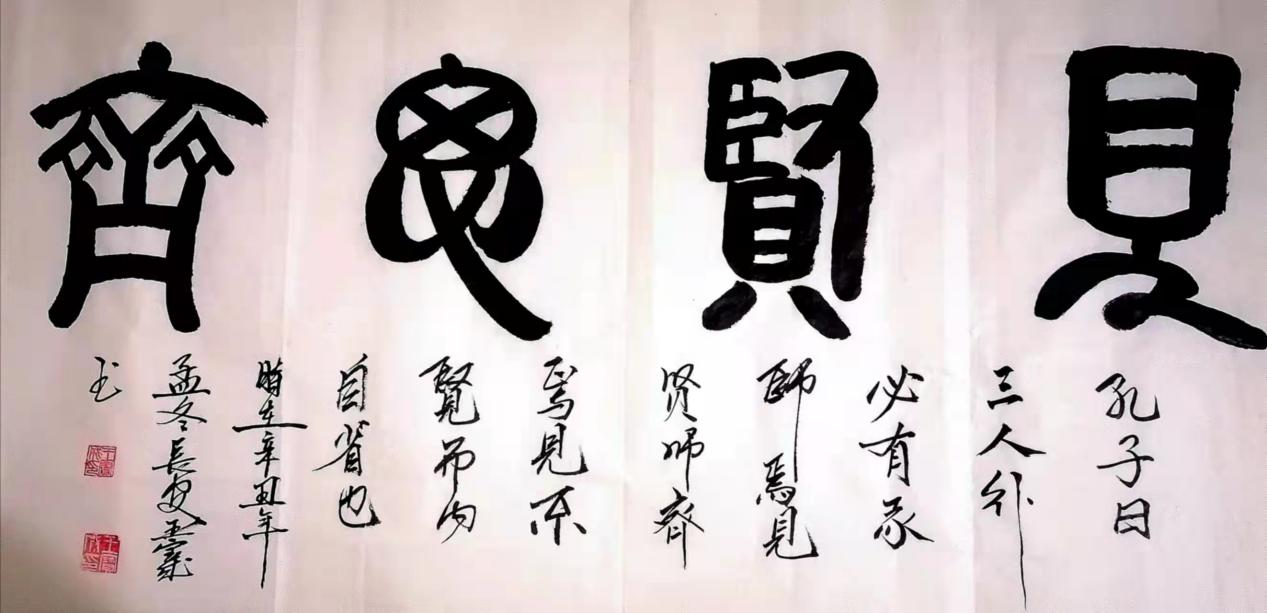 見賢思齊
孔子曰
三人行
必有我
師焉見
贤齊
焉見不
賢而内
自省也
時在辛丑年
孟冬長安王
书